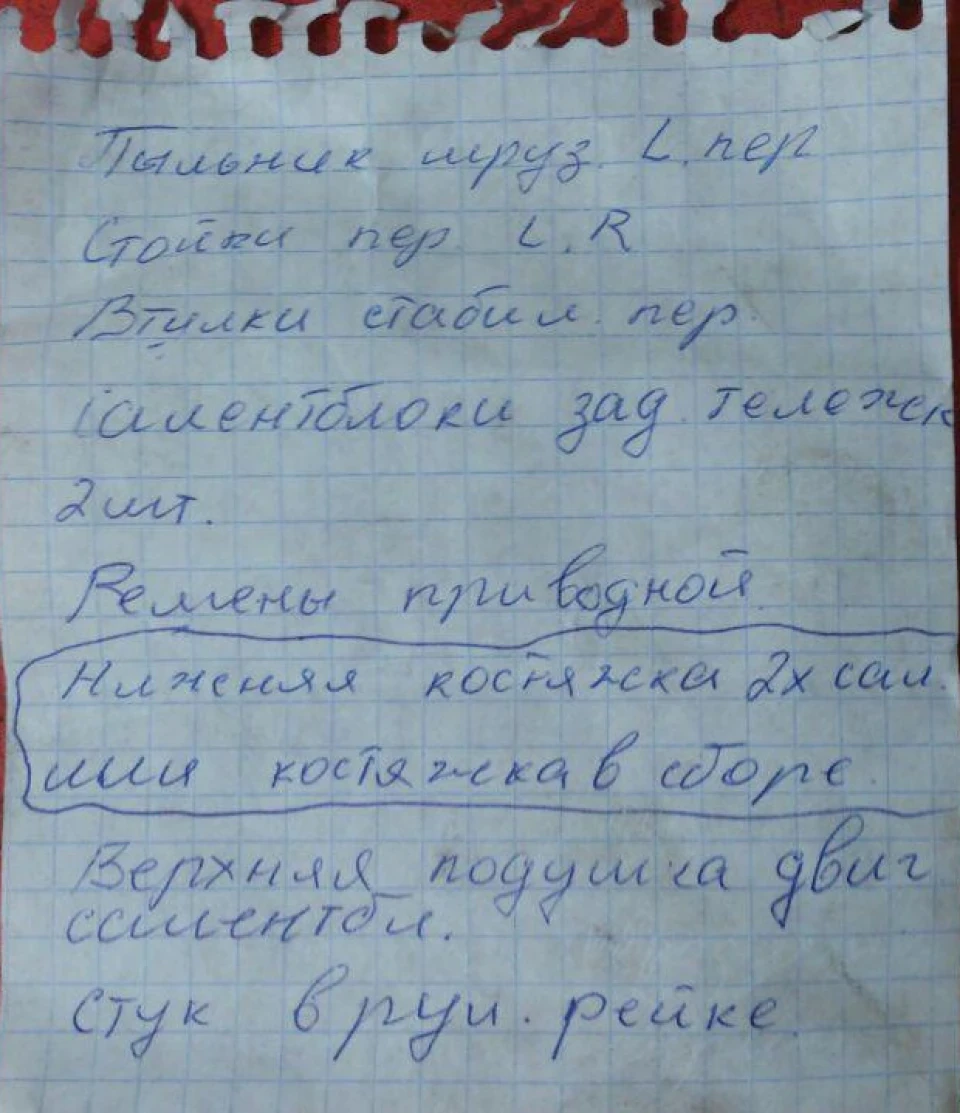 Пыльник шруз. L. пер
Стойки пер L. R
Втулки стабил. пер.
Салентблоки зад. тележк
2 шт.
Ремены приводной.
Нижняя костяжка 2х сал.
или костяжка в сборе.
Верхняя подушка двиг
салентбл.
Стук в рул. рейке.